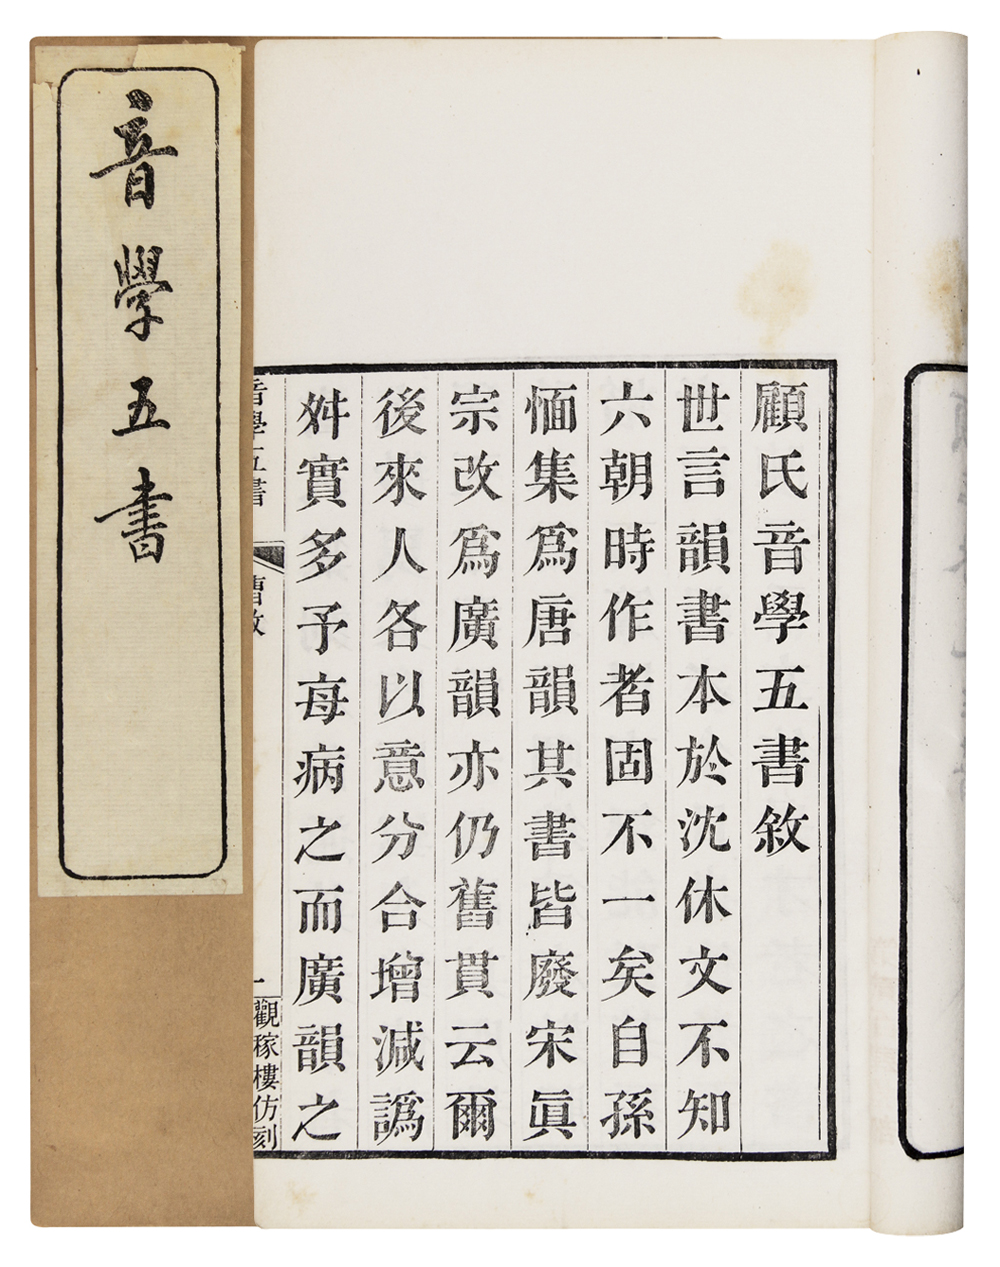 音學五書
顧氏音學五書敘
世言韻書本於沈休文不知
六朝時作者固不一矣自孫
愐集爲唐韻其書皆廢宋眞
宗改爲廣韻亦仍舊貫云爾
後來人各以意分合增減譌
舛實多予每病之而廣韻之
音學五書
曹敘
一
觀稼樓仿刻